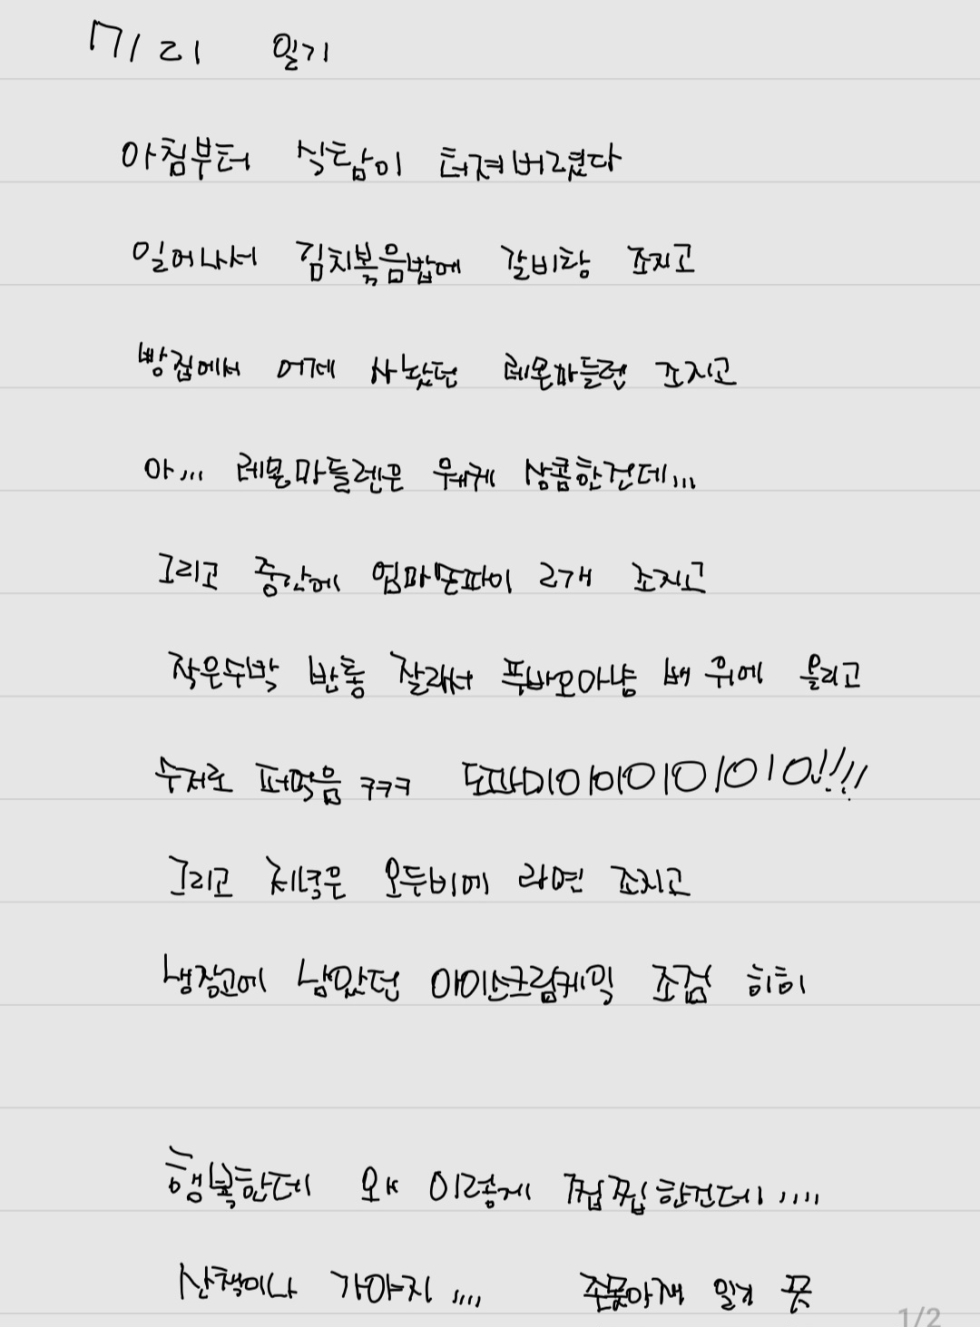 미리 일기
아침부터 식탐이 터져버렸다
일어나서 김치볶음밥에 갈비탕 조지고
빵집에서 어제 사놨던 레몬마들렌 조지고
아,,, 레몬마들렌은 왜케 상콤한건데,,,
그리고 중간에 엄마몬파이 2개 조지고
작은수박 반통 잘라서 푸바오마냥 배 위에 올리고
수저로 퍼먹음 ㅋㅋㅋ 도파미이이이이이인!!!!
그리고 저녁은 오두비에 라면 조지고
냉장고에 남았던 아이스크림케익 조짐 히히
행복한데 왜 이렇게 찝찝한건데,,,,,
산책이나 가야지,,,, 일기 끗
1/2